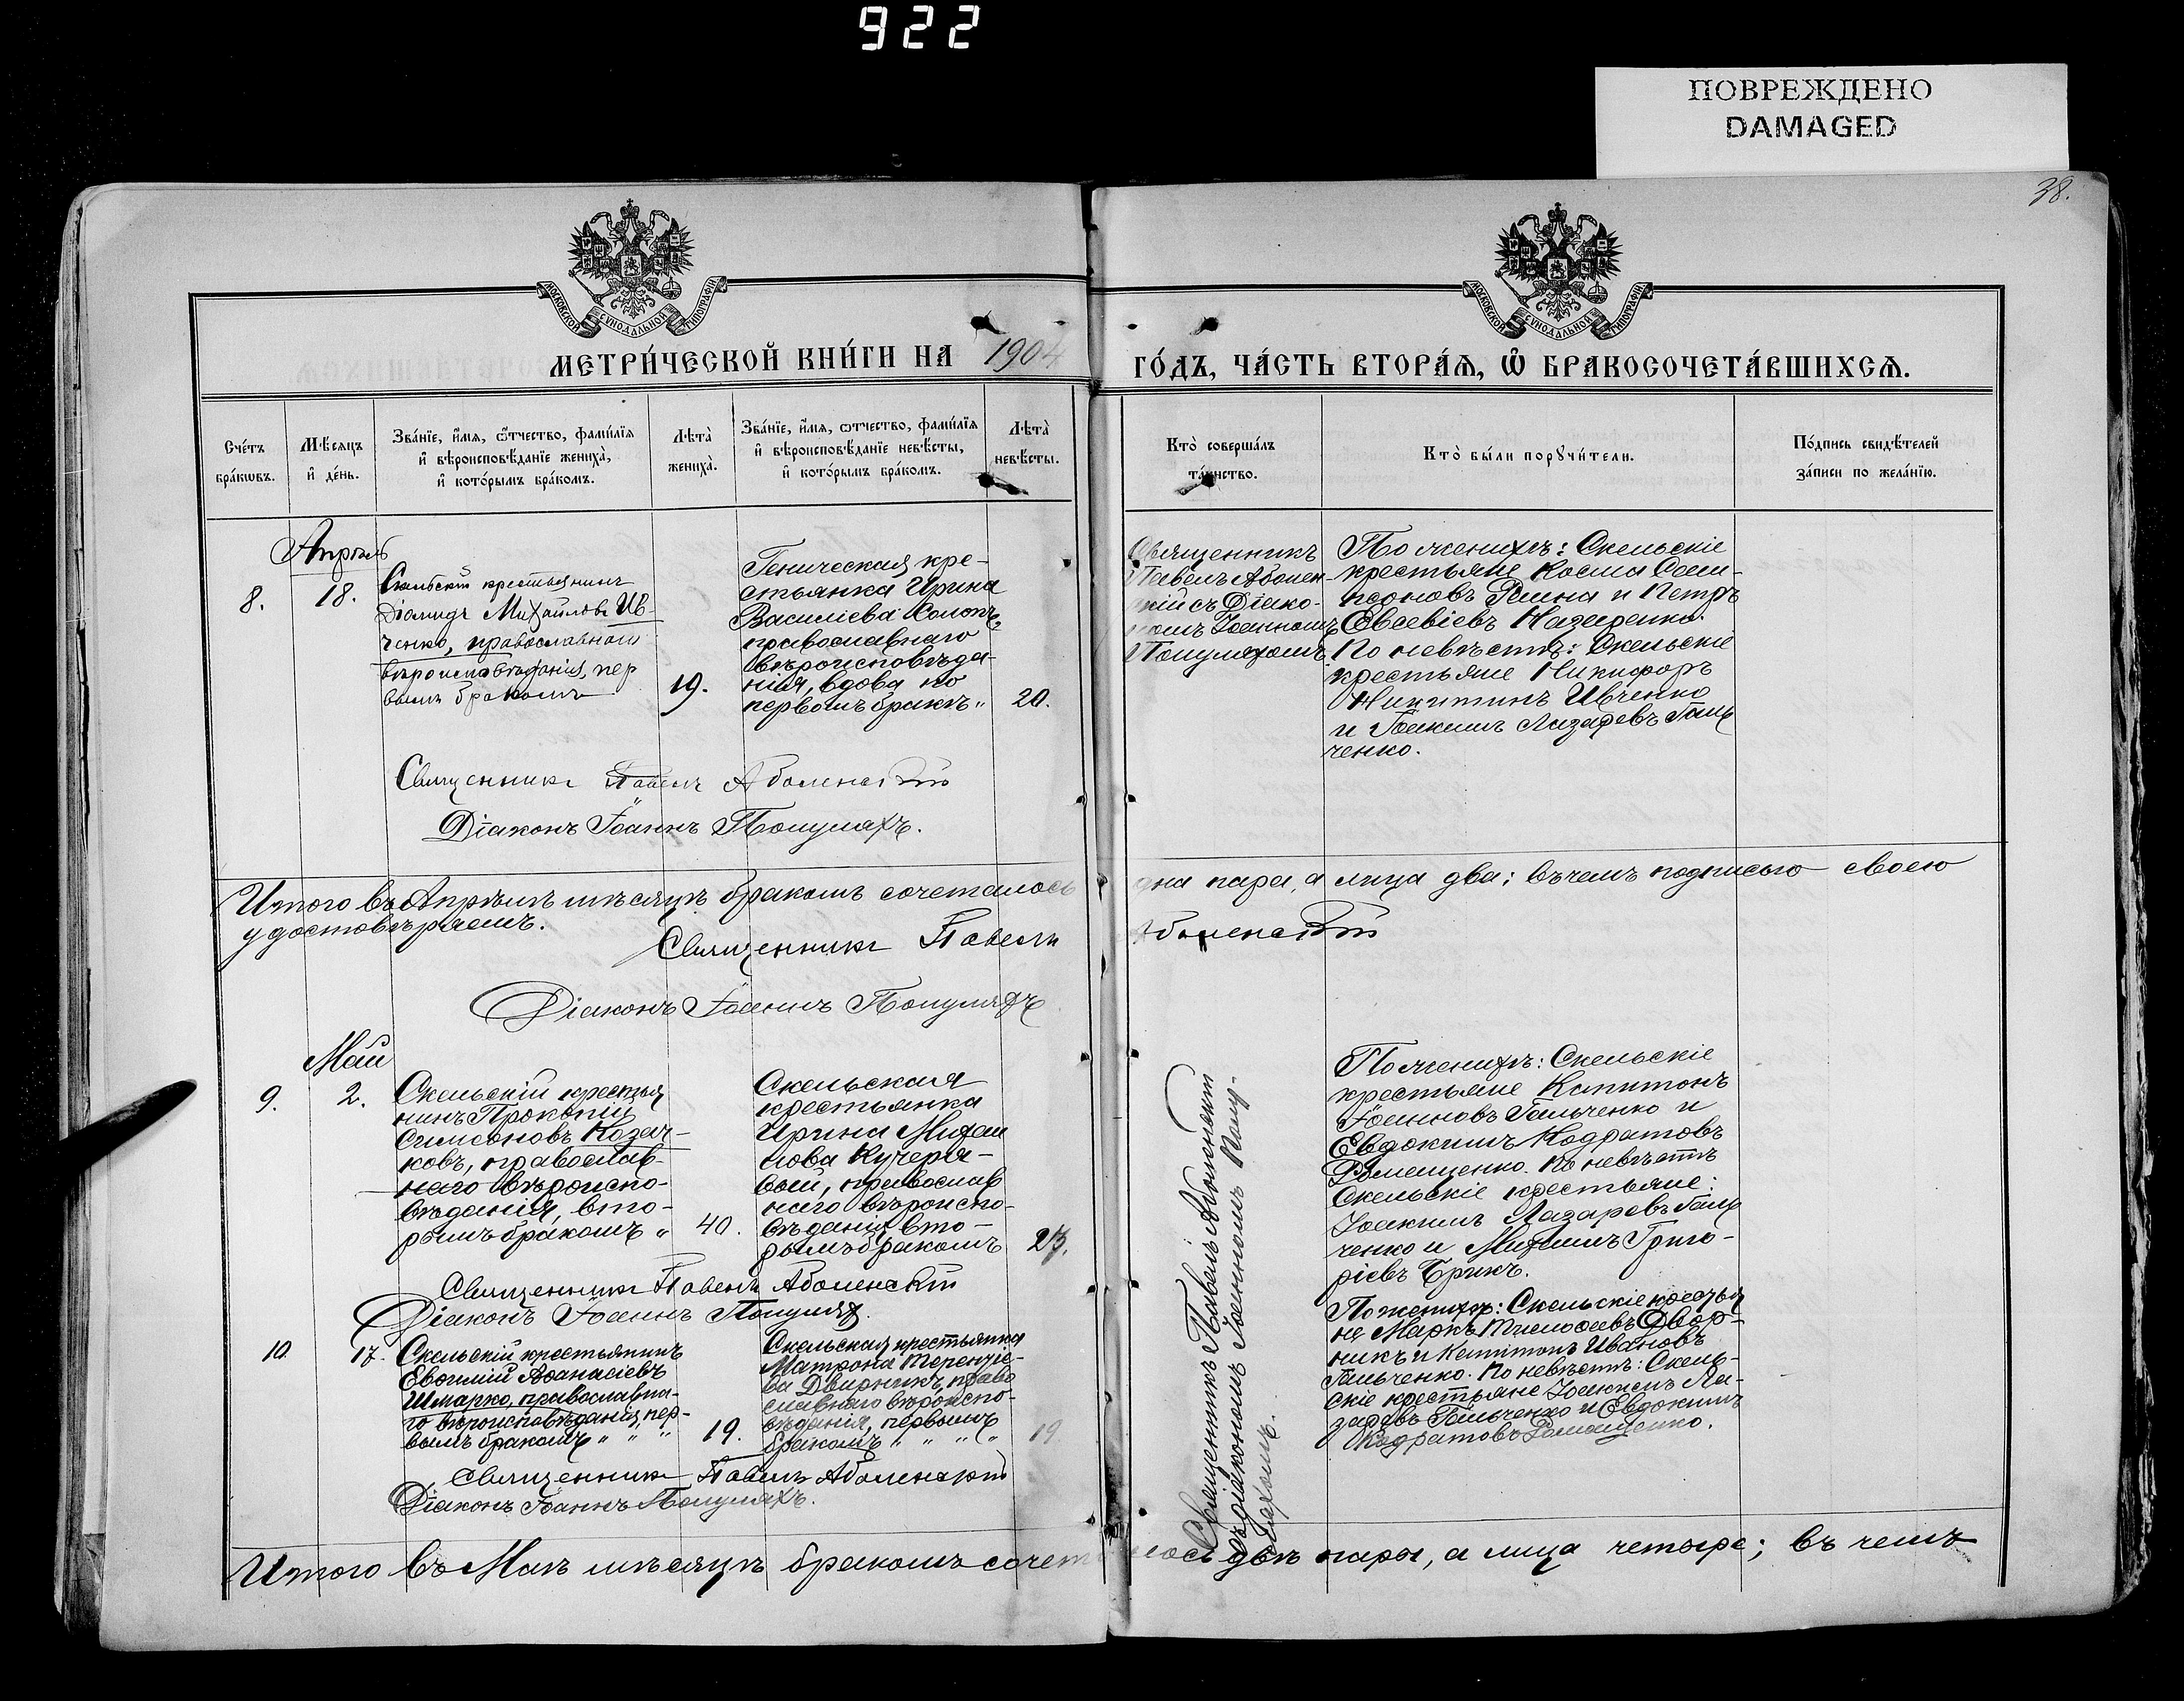 922
ПОВРЕЖДЕНО
DAMAGED
38.
МОСКОВСКОЙ СѴНОДАЛЬНОЙ ТИПОГРАФІИ
МОСКОВСКОЙ СѴНОДАЛЬНОЙ ТИПОГРАФІИ
МЕТРИ́ЧЕСКОЙ КНИ́ГИ НА 1904 ГО́ДЪ, ЧА́СТЬ ВТОРА́Ѧ, Ѡ҆ БРАКОСОЧЕТА́ВШИХСѦ.
Сче́тъ
бра́кѡвъ.
Мѣ́сѧцъ
и҆ де́нь.
Зва́нїе, и҆́мѧ, ѻ҆́тчество, фами́лїѧ
и҆ вѣроисповѣ́данїе жениха̀,
и҆ кото́рымъ бра́комъ.
Лѣта̀
жениха̀.
Зва́нїе, и҆́мѧ, ѻ҆́тчество, фами́лїѧ
и҆ вѣроисповѣ́данїе невѣ́сты,
и҆ кото́рымъ бра́комъ.
Лѣта̀
невѣ́сты.
Кто̀ соверша́лъ
та́инство.
Кто̀ бы́ли порꙋчи́тели.
По́дпись свидѣ́телей
за́писи по жела́нїю.
Апрѣль
8.
18.
Скельскій крестьянинъ
Діомидъ Михайловъ Ив-
ченко, православнаго
вѣроисповѣданія, пер
вымъ бракомъ
19.
Геническая кре-
стьянка Ирина
Василіева
православнаго
вѣроисповѣда-
нія, вдова по
первомъ бракѣ "
20.
Священникъ
Павелъ Аболен-
скій съ Діако-
номъ Іоанномъ
Популяхомъ
По женихѣ: Скельскіе
крестьяне Косма Сам-
псоновъ и Петръ
Евсевіевъ Назаренко.
По невѣстѣ: Скельскіе
крестьяне Никифоръ
Никитинъ Ивченко
и Іоакимъ Лазаревъ Галь
ченко.
Священникъ Павелъ Аболенскій
Діаконъ Іоаннъ Популяхъ.
Итого въ Апрѣлѣ мѣсяцѣ бракомъ сочеталось одна пара, а лица два; въ чемъ подписью своею
удостовѣряемъ.
Священникъ Павелъ Аболенскій
Діаконъ Іоаннъ Популяхъ
Май
9.
2.
Скельскій крестья
нинъ Прокопій
Симеоновъ Козач-
ковъ, православ-
наго вѣроиспо-
вѣданія, вто-
рымъ бракомъ "
40.
Скельская
крестьянка
Ирина Михаи
лова Кучеря-
вый, православ
наго вѣроиспо-
вѣданія, вто-
рымъ бракомъ
Священникъ Павелъ Аболенскій
съ діакономъ Іоанномъ Попу-
ляхомъ.
По женихѣ: Скельскіе
крестьяне Капитонъ
Іоанновъ Гальченко и
Евдокимъ Кодратовъ
Ромащенко. По невѣстѣ
Скельскіе крестьяне:
Іоакимъ Лазаревъ Галь
ченко и Михаилъ Григо-
ріевъ Брикъ.
Священникъ Павелъ Аболенскій
Діаконъ Іоаннъ Популяхъ.
10.
17.
Скельскій крестьянинъ
Евѳимій Аѳанасіевъ
Шмарко, православна-
го вѣроисповѣданія, пер-
вымъ бракомъ " " "
19.
Скельская крестьянка
Матрона Терентіе-
ва Дворникъ, право
славнаго вѣроиспо-
вѣданія, первымъ
бракомъ " " " "
19
По женихѣ: Скельскіе крестья
не Маркъ Тимоѳеевъ Двор-
никъ и Капитонъ Ивановъ
Гальченко. По невѣстѣ: Скель-
скіе крестьяне Іоакимъ Ла-
заревъ Гальченко и Евдокимъ
Кодратовъ Ромащенко.
Священникъ Павелъ Аболенскій
Діаконъ Іоаннъ Популяхъ.
Итого въ Маѣ мѣсяцѣ бракомъ сочеталось двѣ пары, а лица четыре; въ чемъ